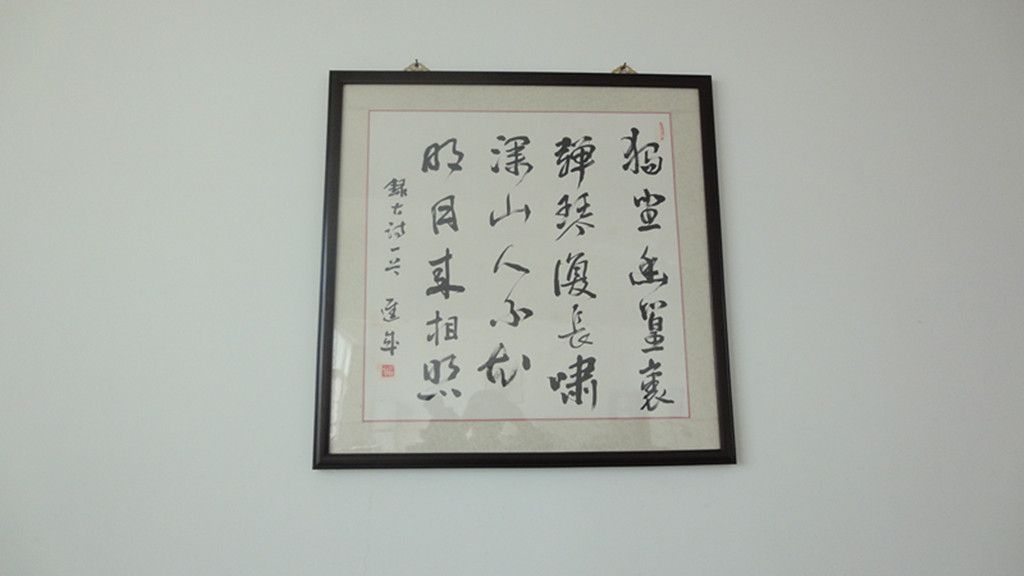 獨坐幽篁裏
彈琴復長嘯
深山人不知
明月来相照
録古詩一首